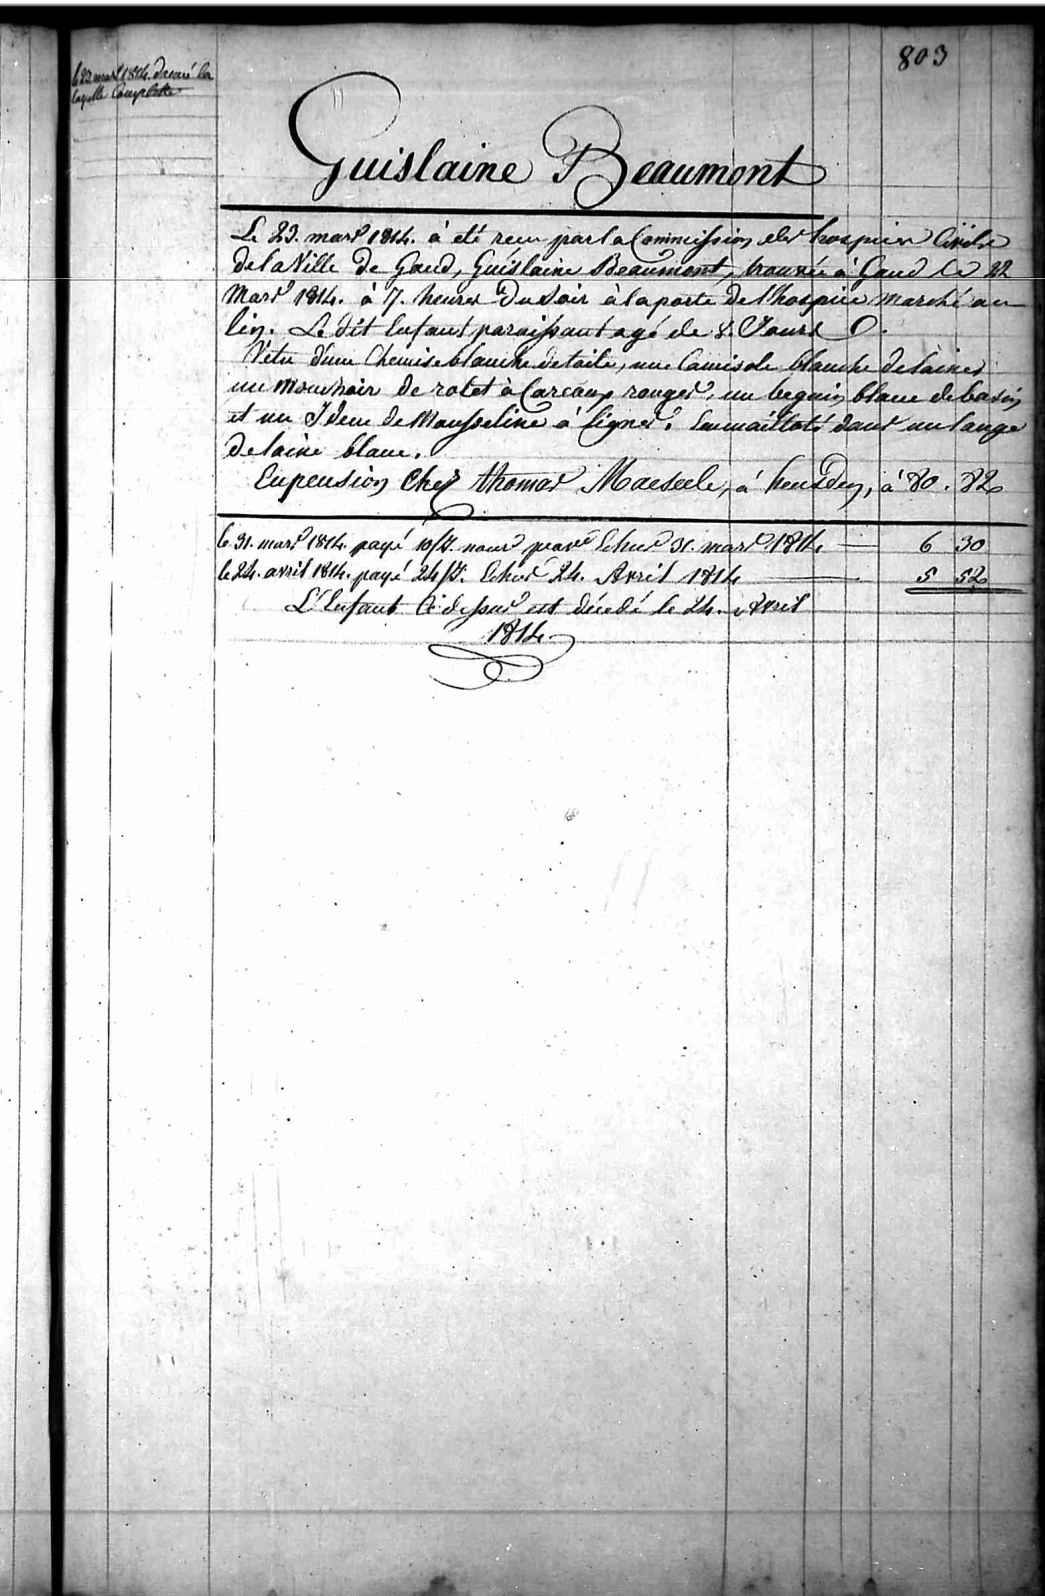 803
le 23 mars 1814. donné la
layette Complette
Guislaine Beaumont
Le 23. mars 1814. à eté recu par la Commission des hospices Civils
de la Ville de Gand, Guislaine Beaumont, trouvée à Gand le 22
Mars 1814. à 7. heures Du Soir à la porte De l'hospice marché au
lin. Le dit Enfant paraissant agé de 8. Jours
Vetu d'une Chemise blanche de toile, une Camisole blanche de laine
un Mouchoir de à Carcaux rouges, un beguin blanc de basin
et un Idem de Mousseline à lignes. Emmailloté dans un lange
de laine blanc.
En pension Chez thomas Maeseele, à heusden, à 80. 82
le 31. mars 1814. payé nours Echus 31. mars 1814 6 30
le 24. avril 1814. payé Echus 24. Avril 1814 5 52
L'Enfant Ci dessus est décédé le 24. Avril
1814.